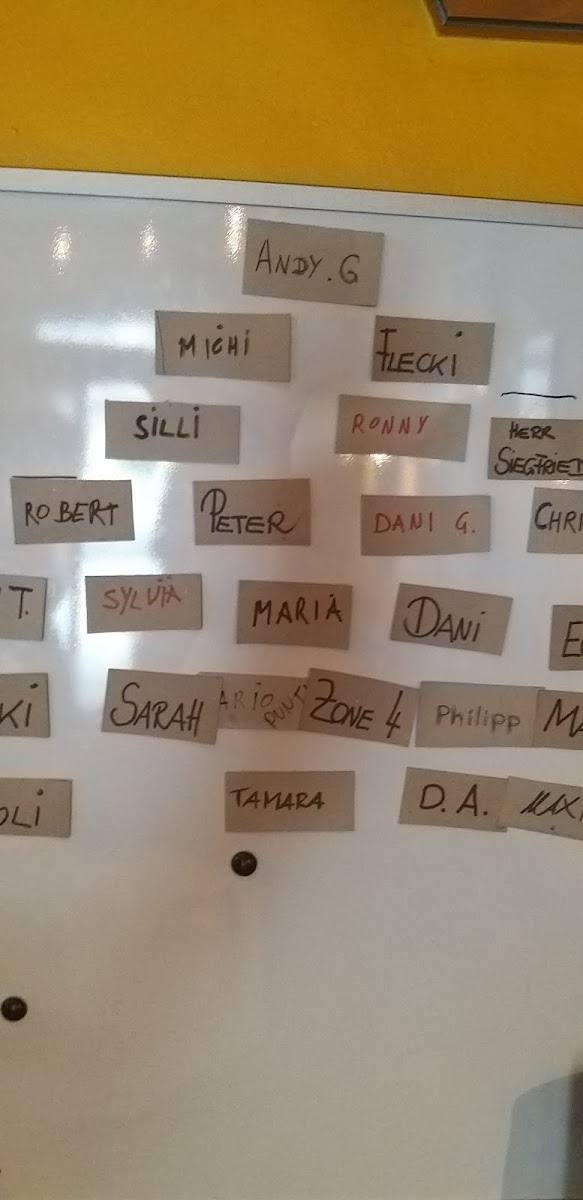 ANDY.G
MICHI FLECKI
SILLI RONNY HERR
SIEGFRIED
ROBERT PETER DANI G. CHRI
T. SYLVIA MARIA DANI E
KI SARAH ARIO ZONE 4 Philipp MA
PUNT
OLI TAMARA D.A. MAXI